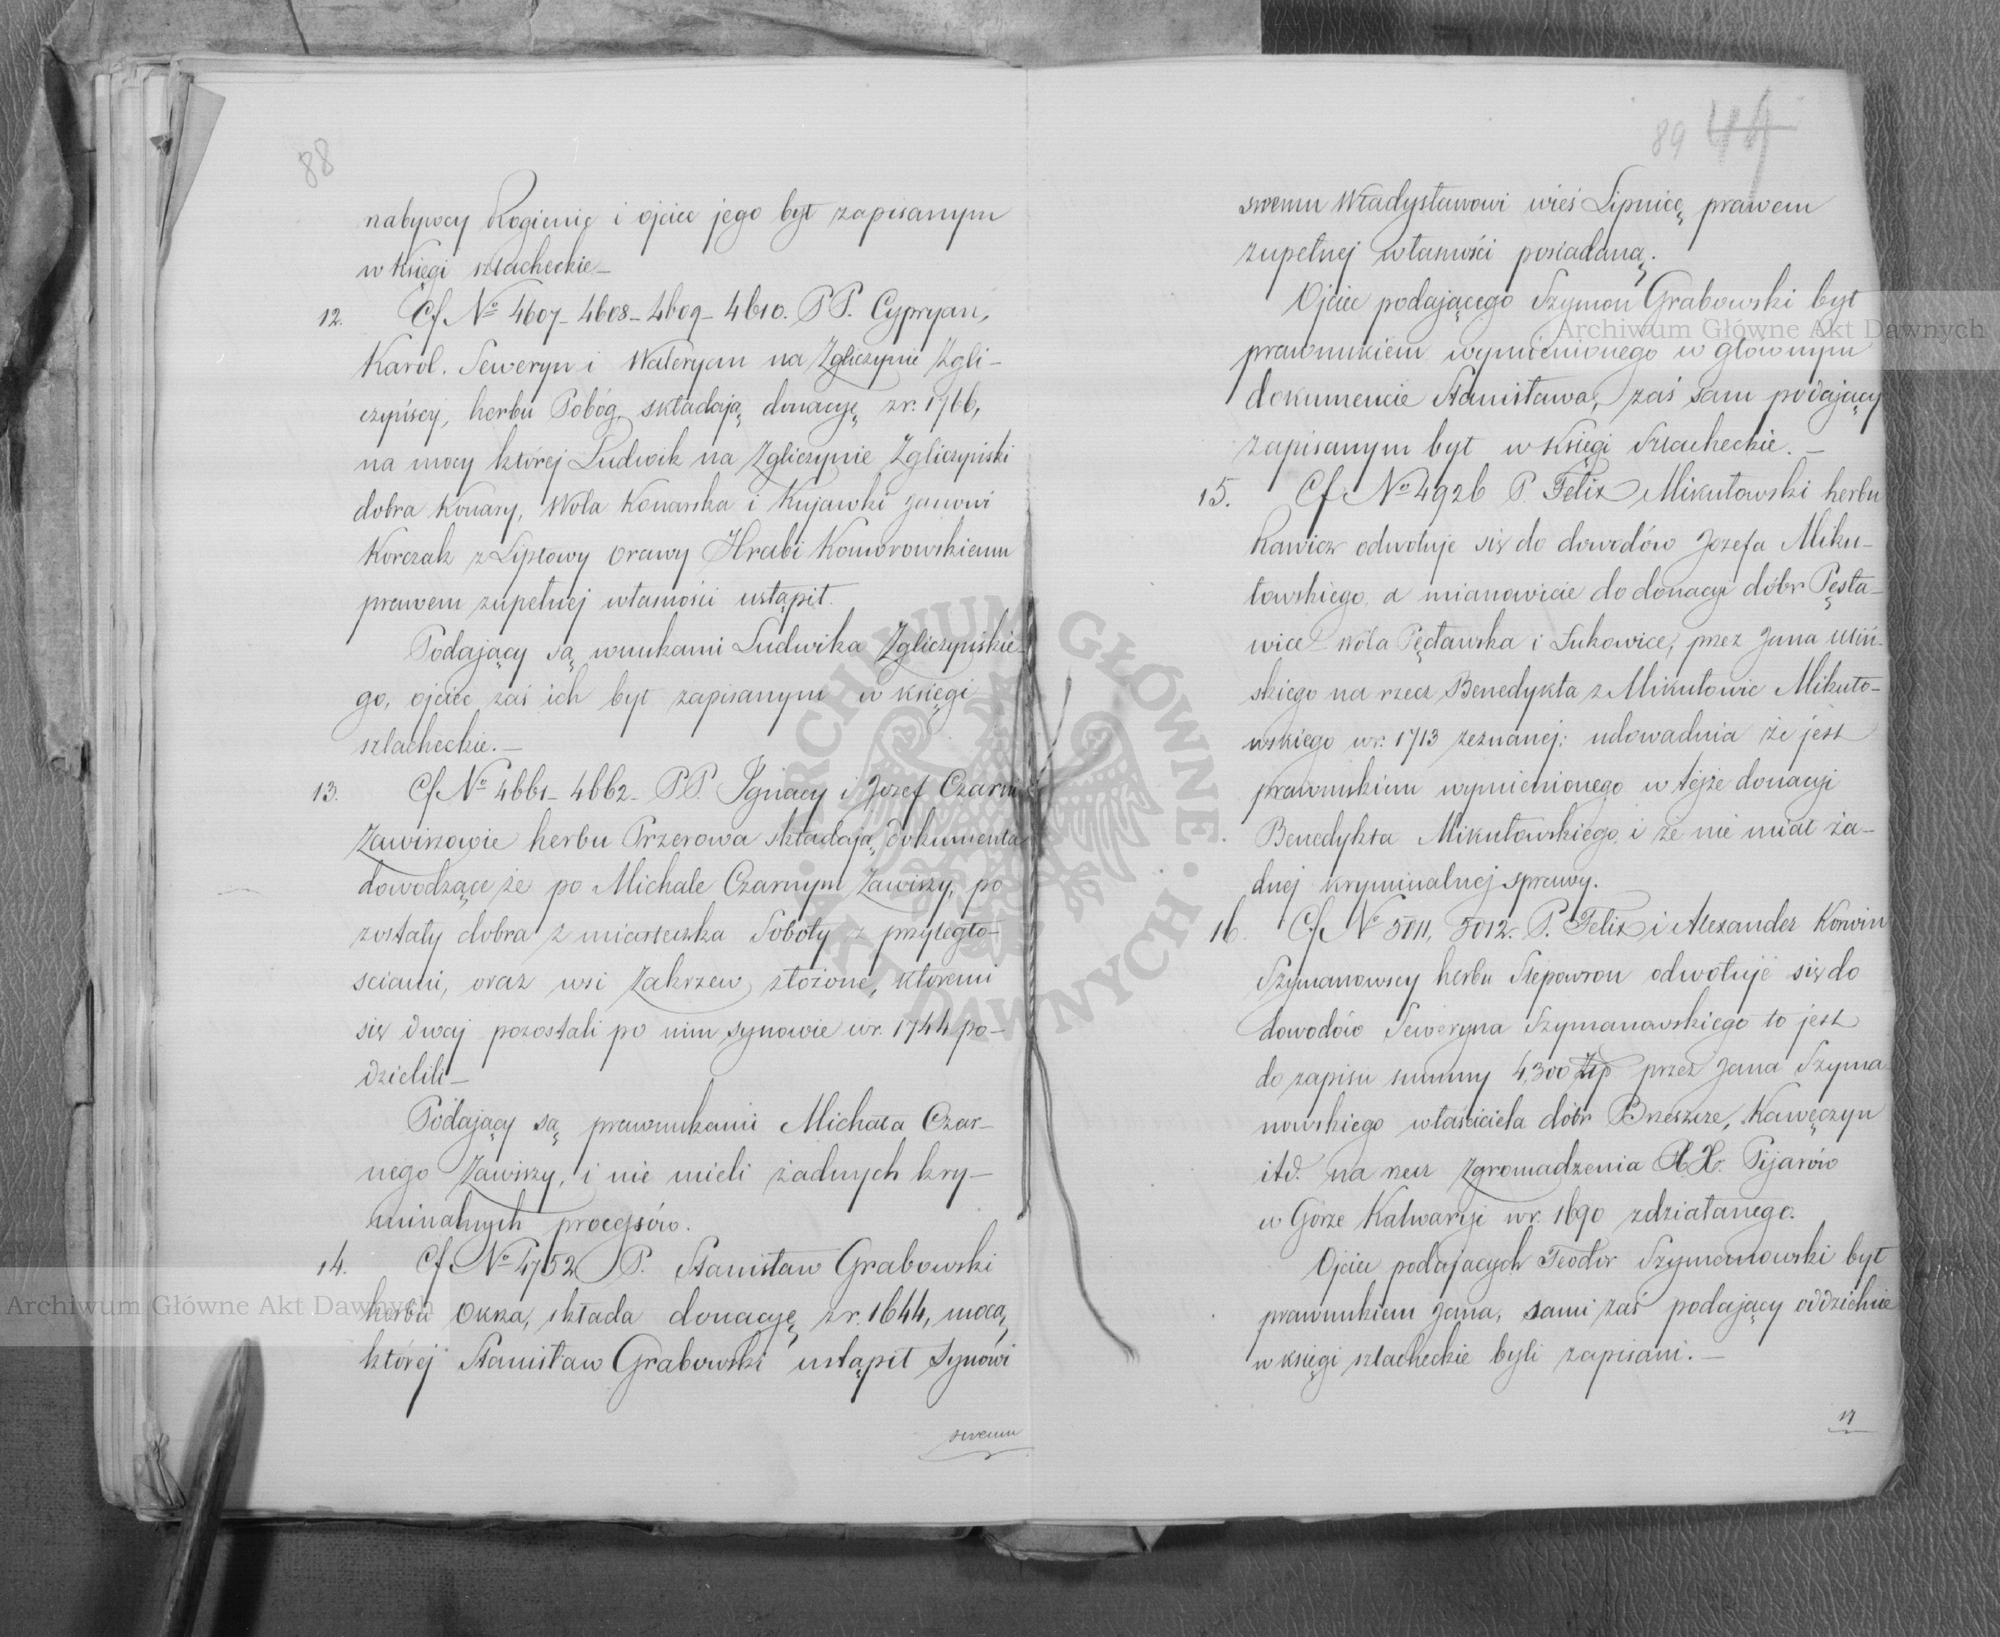 88
nabywcy Rogienic i ojciec jego był zapisanym
w Księgi szlacheckie_
12. Cf No 4607_ 4608_ 4609_ 4610. PP. Cypryan,
Karol, Seweryn i Waleryan na Zgliczynie Zgli-
czyńscy, herbu Pobóg, składają donacyę z r. 1766,
na mocy której Ludwik na Zgliczynie Zgliczyński
dobra Konary, Wola Konarska i Kujawki Janowi
Korczak z Liptowy Orawy Hrabi Komorowskiemu
prawem zupełnej własności ustąpił.
Podający są wnukami Ludwika Zgliczyńskie-
go, ojciec zaś ich był zapisanym w księgi
szlacheckie._
13. Cf No 4661_ 4662_ P.P. Ignacy i Jozef Czarni
Zawiszowie herbu Przerowa składają dokumenta
dowodzące że po Michale Czarnym Zawiszy, po
zostały dobra z miasteczka Soboty z przyległo-
sciami, oraz wsi Zakrzew złożone, któremi
się dwaj pozostali po nim synowie w r. 1744 po-
dzielili_
Podający są prawnukami Michała Czar-
nego Zawiszy, i nie mieli żadnych kry-
minalnych procesów.
14. Cf No 4752 P. Stanisław Grabowski
herbu Okrza, składa donacyę z r. 1644, mocą,
której Stanisław Grabowski ustąpił Synowi
swemu
89 44
swemu Władysławowi wieś Lipnicę prawem
zupełnej własności posiadaną.
Ojciec podającego Szymon Grabowski był
prawnukiem wymienionego w głównym
dokumencie Stanisława, zaś sam podający
zapisanym był w Księgi Szlacheckie._
15. Cf No 4926 P. Felix Mikułowski herbu
Rawicz odwołuje się do dowodów Jozefa Miku-
łowskiego, a mianowicie do donacyi dóbr Pęsła-
wice Wola Pęcławska i Jukowice, przez Jana Uliń-
skiego na rzecz Benedykta z Mikułowic Mikuło-
wskiego w r. 1713 zeznanej: udowadnia że jest
prawnukiem wymienionego w tejże donacyi
Benedykta Mikułowskiego i że nie miał ża-
dnej kryminalnej sprawy.
16. Cf No 5011, 5012. P. Felix i Alexander Korwin
Szymanowscy herbu Slepowron odwołuje się do
dowodów Seweryna Szymanowskiego to jest
do zapisu summy 4,300 Złp przez Jana Szyma
nowskiego właściciela dóbr Brzeszcze, Kawęczyn
itd. na rzecz Zgromadzenia XX. Pijarów
w Górze Kalwaryi w r. 1690 zdziałanego.
Ojciec podających Teodor Szymanowski był
prawnukiem Jana, sami zaś podający oddzielnie
w księgi szlacheckie byli zapisani._
17
Archiwum Główne Akt Dawnych
Archiwum Główne Akt Dawnych
ARCHIWUM GŁÓWNE · AKT DAWNYCH ·